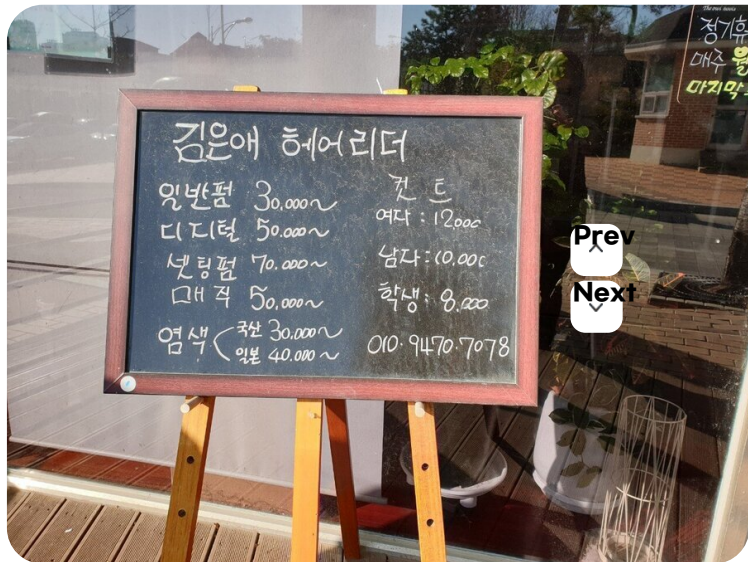 김은애 헤어리더
일반펌 30,000~
디지털 50.000~
셋팅펌 70.000~
매직 50,000~
염색 국산 30,000~
일본 40.000~
컷트
여자 : 12000
남자 : 10.000
학생 : 8,000
010·9470·7078
정기휴
매주 월
마지막
Prev
Next